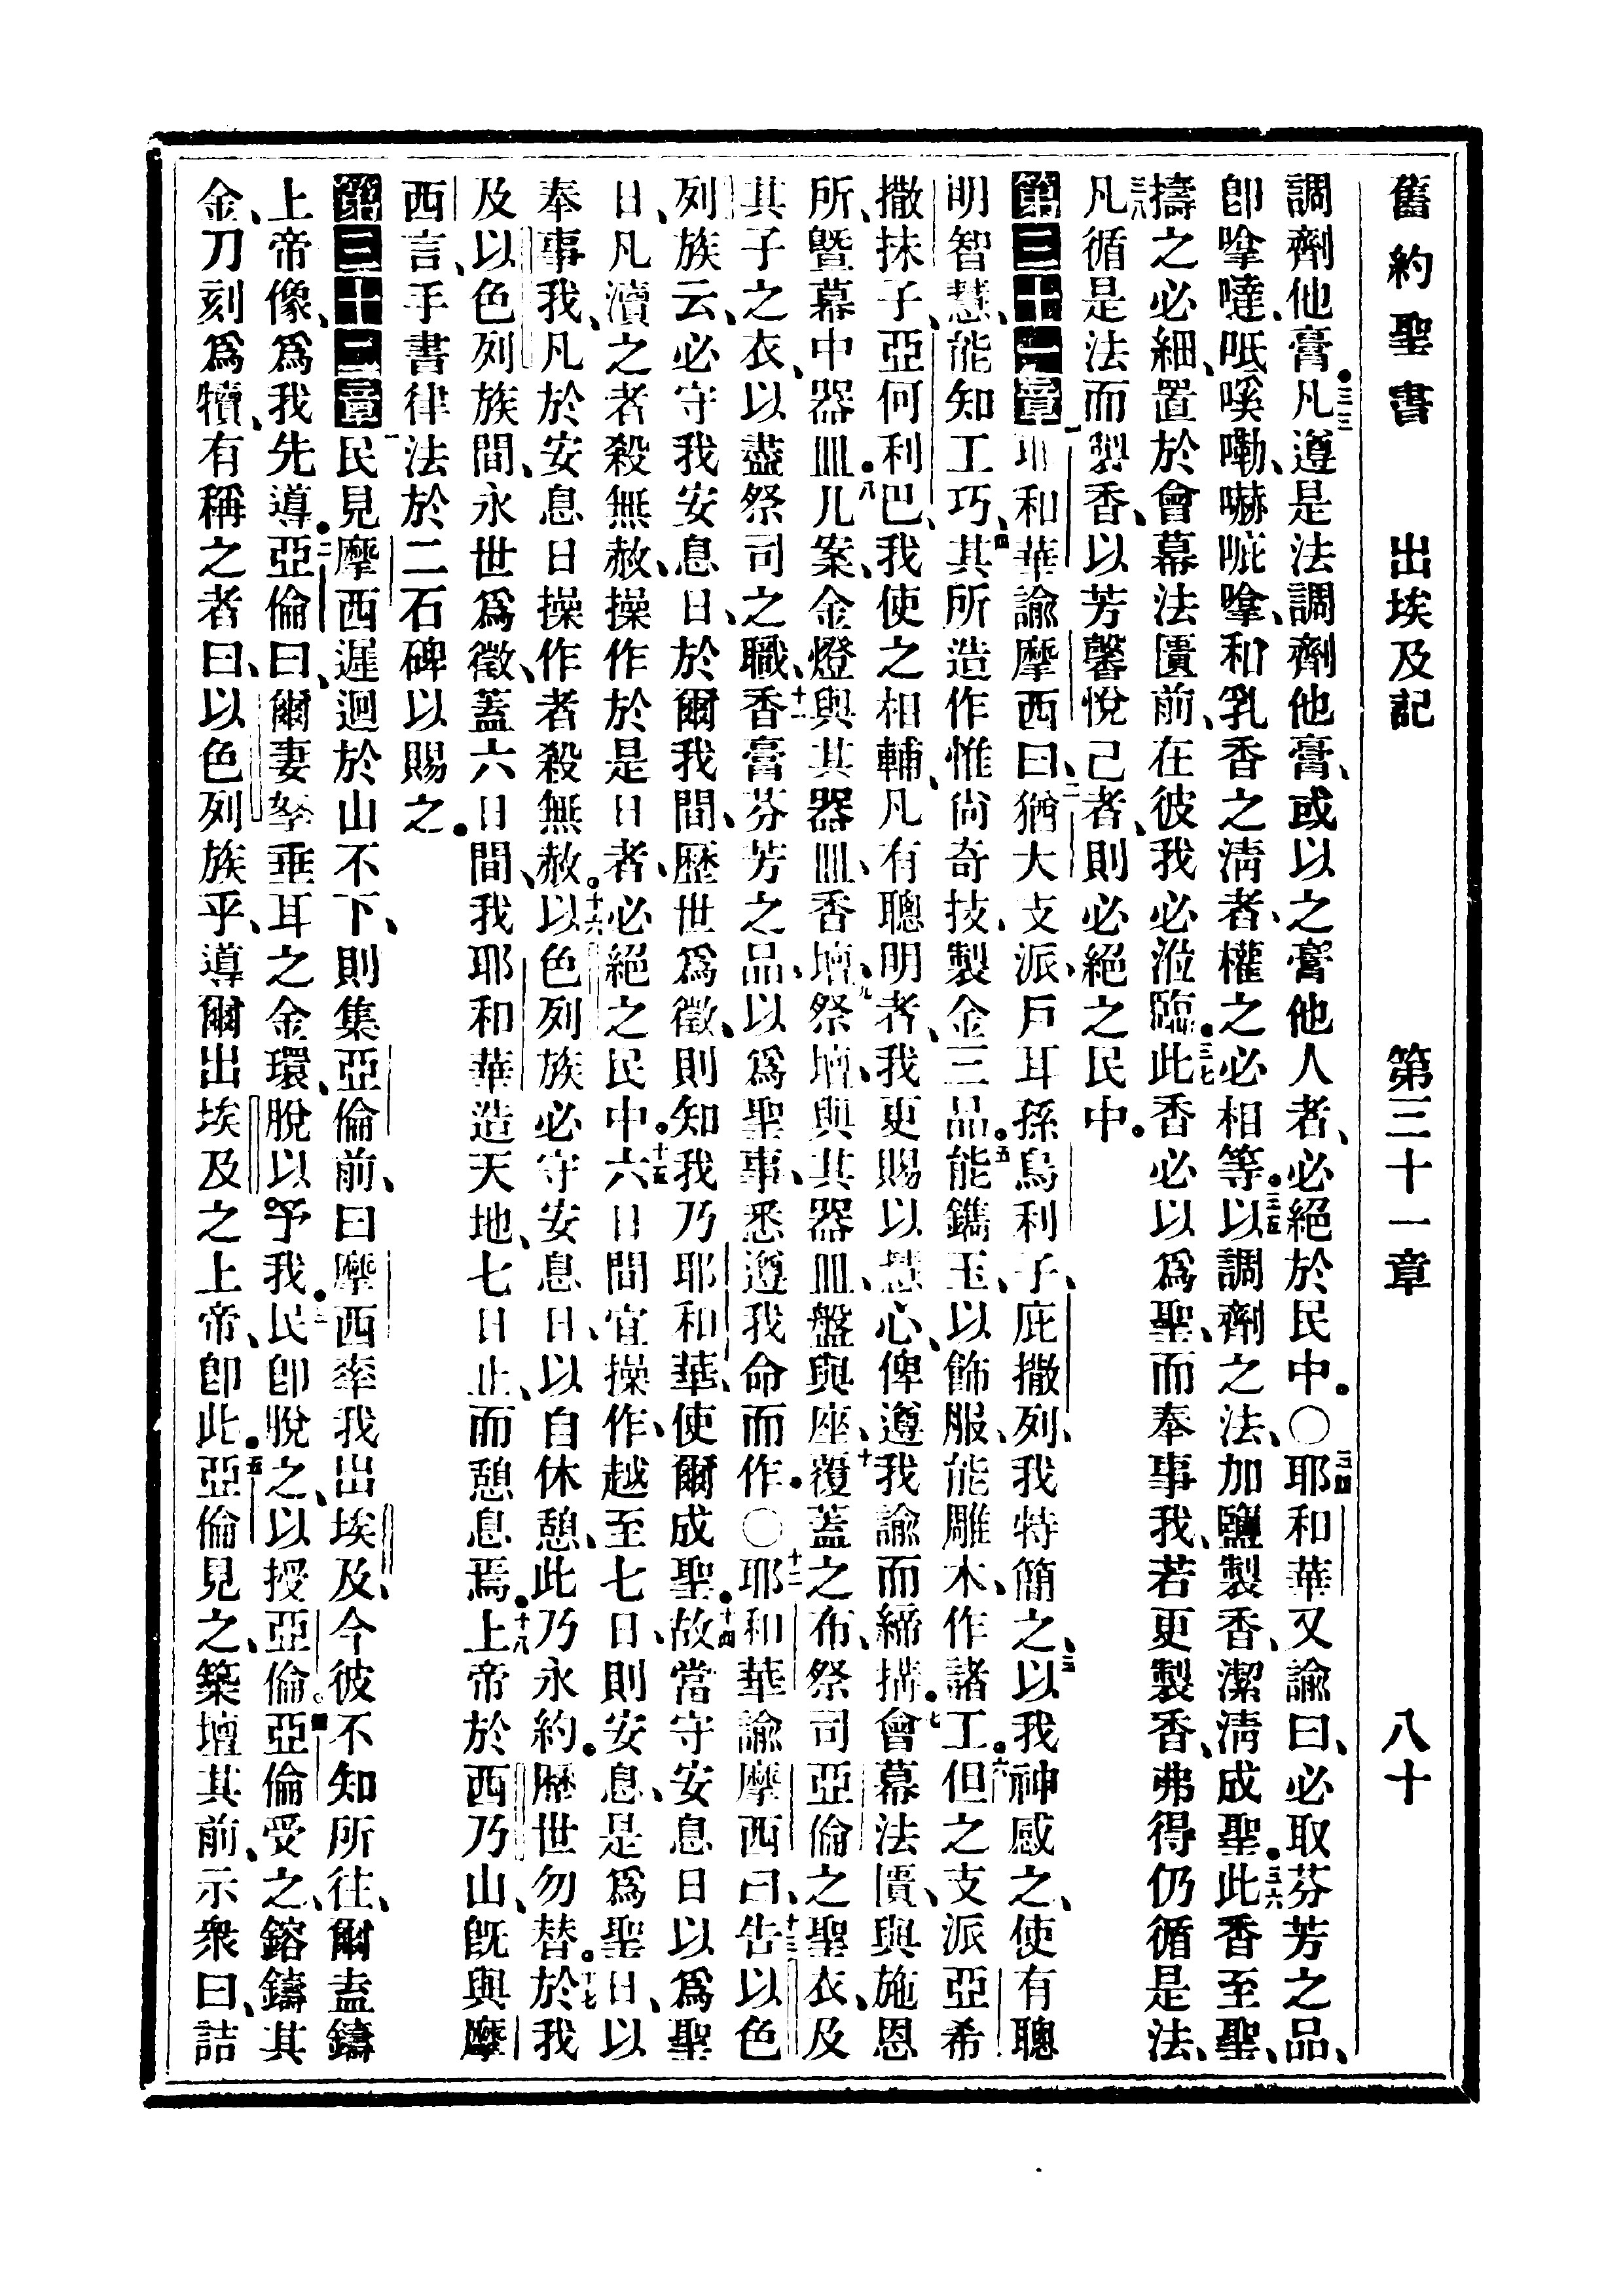 舊約聖書 出埃及記 第三十一章 八十
調劑他膏。三三凡遵是法調劑他膏、或以之膏他人者、必絕於民中。〇三四耶和華又諭曰、必取芬芳之品、
卽嗱噠、呧嗘嘞、嚇㗉嗱、和乳香之淸者、權之必相等。三五以調劑之法、加鹽製香、潔淸成聖。三六此香至聖、
擣之必細、置於會幕法匱前、在彼我必涖臨。三七此香必以爲聖、而奉事我、若更製香、弗得仍循是法、
三八凡循是法而製香、以芳馨悅己者、則必絕之民中。
第三十一章一耶和華諭摩西曰、二猶大支派、戶耳孫烏利子、庇撒列、我特簡之、三以我神感之、使有聰
明智慧、能知工巧、四其所造作惟尙奇技、製金三品。五能鐫玉、以飾服、能雕木、作諸工。六但之支派亞希
撒抹子、亞何利巴、我使之相輔、凡有聰明者、我更賜以慧心、俾遵我諭而締搆。七會幕法匱、與施恩
所、曁幕中器皿。八几案、金燈與其器皿、香壇、九祭壇、與其器皿、盤與座、十覆蓋之布、祭司亞倫之聖衣、及
其子之衣、以盡祭司之職、十一香膏芬芳之品、以爲聖事、悉遵我命而作。〇十二耶和華諭摩西曰、十三告以色
列族云、必守我安息日、於爾我間、歷世爲徵、則知我乃耶和華、使爾成聖。十四故當守安息日以爲聖
日、凡瀆之者殺無赦、操作於是日者、必絕之民中。十五六日間宜操作、越至七日、則安息、是爲聖日、以
奉事我、凡於安息日操作者殺無赦。十六以色列族必守安息日、以自休憩、此乃永約。歷世勿替。十七於我
及以色列族間、永世爲徵、蓋六日間、我耶和華造天地、七日止、而憩息焉。十八上帝於西乃山、旣與摩
西言、手書律法於二石碑以賜之。
第三十二章一民見摩西遲迴於山不下、則集亞倫前、曰摩西率我出埃及、今彼不知所往、爾盍鑄
上帝像、爲我先導。二亞倫曰、爾妻孥垂耳之金環、脫以予我。三民卽脫之、以授亞倫。四亞倫受之、鎔鑄其
金、刀刻爲犢、有稱之者曰、以色列族乎、導爾出埃及之上帝、卽此。五亞倫見之、築壇其前、示衆曰、詰